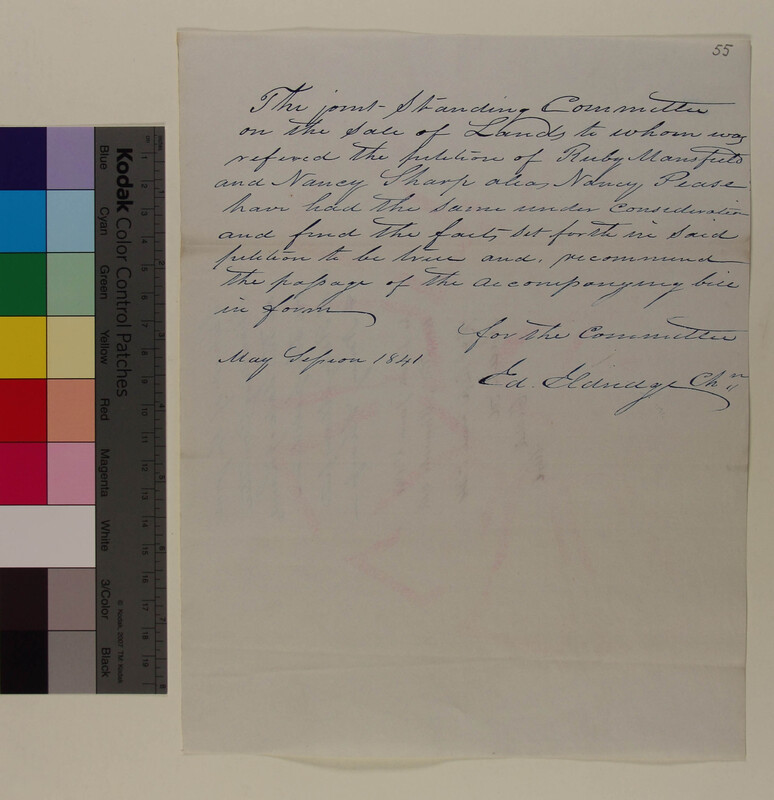 55
The joint Standing Committee
on the Sale of Lands to whom was
refered the petition of Ruby Mansfield
and Nancy Sharp alias Nancy Pease
have had the same under consideration
and find the facts set forth in said
petition to be true and, recommend
the passage of the accompanying bill
in form
for the Committee
May Session 1841
Ed. Eldridge Chn
Kodak Color Control Patches
Blue
Cyan
Green
Yellow
Red
Magenta
White
3/Color
Black
© Kodak, 2007 TM: Kodak
1 2 3 4 5 6 7 8 9 10 11 12 13 14 15 16 17 18 19